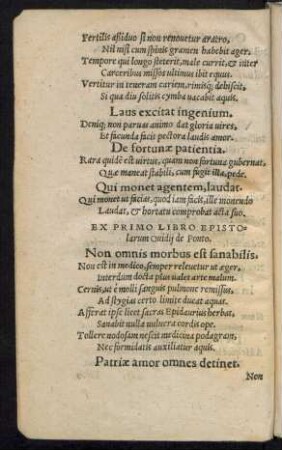 Fertilis assiduo si non renouetur aratro,
Nil nisi cum spinis gramen habebit ager.
Tempore qui longo steterit, male currit, & inter
Carceribus missos ultimus ibit equus.
Vertitur in teneram cariem, rimisq; dehiscit,
Si qua diu solitis cymba uacabit aquis.
Laus excitat ingenium.
Deniq; non paruas animo dat gloria uires,
Et fœcunda facit pectora laudis amor.
De fortunæ patientia.
Rara quidē est uirtus, quam non fortuna gubernat,
Quæ maneat stabili, cum fugit illa, pede.
Qui monet agentem, laudat.
Qui monet ut facias, quod iam facis, ille monendo
Laudat, & hortatu comprobat acta suo.
EX PRIMO LIBRO EPISTO=
larum Ouidij de Ponto.
Non omnis morbus est sanabilis.
Non est in medico, semper releuetur ut æger,
Interdum docta plus ualet arte malum.
Cernis, ut è molli sanguis pulmone remissus,
Ad stygias certo limite ducat aquas.
Afferat ipse licet sacras Epidaurius herbas,
Sanabit nulla uulnera cordis ope.
Tollere nodosam nescit medicina podagram,
Nec formidatis auxiliatur aquis.
Patriæ amor omnes detinet.
Non